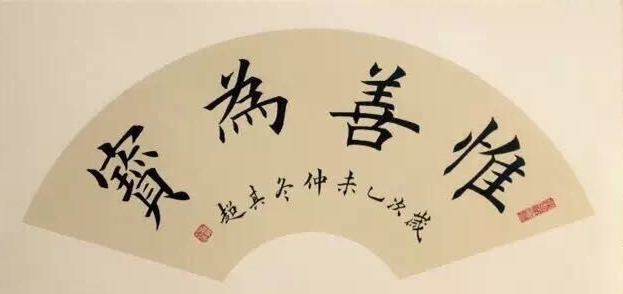 惟善為寶
歲次乙未仲冬其超